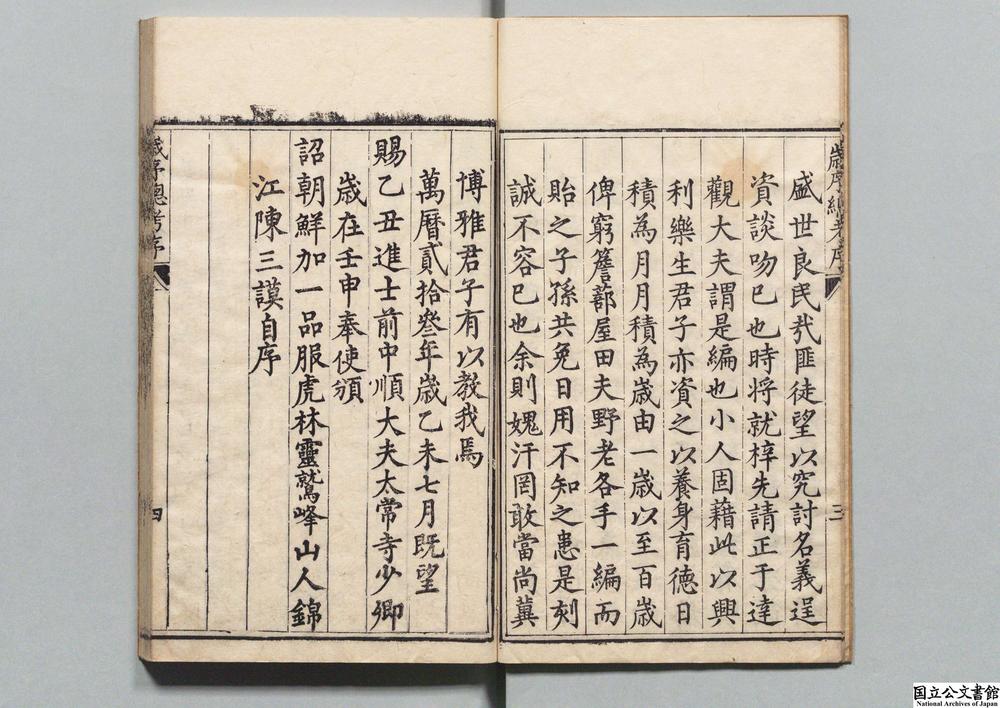 歳序總考序
三
盛世良民㢤匪徒望以究討名義逞
資談吻已也時将就梓先請正于達
觀大夫謂是編也小人固藉此以興
利樂生君子亦資之以養身育德日
積為月月積為歳由一歳以至百歳
俾窮簷蔀屋田夫野老各手一編而
貽之子孫共免日用不知之患是刻
誠不容已也余則媿汗罔敢當尚冀
博雅君子有以教我焉
萬曆貳拾叄年歳乙未七月既望
賜乙丑進士前中順大夫太常寺少卿
歳在壬申奉使頒
詔朝鮮加一品服虎林靈鷲峰山人錦
江陳三謨自序
歳序總考序
四
国立公文書館
National Archives of Japan